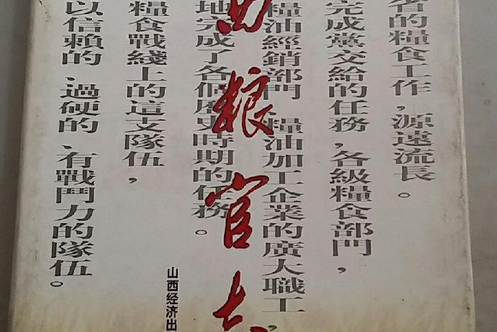 的糧食工作，源遠流長。
完成黨交給的任務，各級糧食部門，
糧油經銷部門、糧油加工企業的廣大職工，
西粮官志
地完成了各個歷史時期的任務。
山西经济出
糧食戰綫上的這支隊伍，
以信賴的、過硬的、有戰鬥力的隊伍。